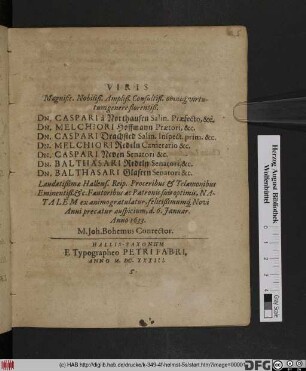 VIRIS
Magnific. Nobiliss. Ampliss. Consultiss. omniq; virtu-
tum genere florentiss.
DN. CASPARI à Northausen Salin. Præfecto, &c.
DN. MELCHIORI Hoffmann Prætori, &c.
DN. CASPARI Salin. Inspect. prim. &c.
DN. MELCHIORI Redeln &c.
DN. CASPARI Senatori &c.
DN. BALTHASARI Redeln Senatori, &c.
DN. BALTHASARI Glasern Senatori &c.
Laudatissimæ Hallens. Reip. Proceribus & Telamonibus
Eminentiss. &c. Fautoribus ac Patronis suis optimis, NA-
TALEM ex animo gratulatur, felicissimumq; Novi
Anni precatur auspicium, d. 6. Januar.
Anno 1633.
M. Joh. Bohemus Conrector.
HALLIS SAXONUM
E Typographeo PETRI FABRI,
ANNO M. DC. XXXIII.
Herzog August Bibliothek
Wolfenbüttel
(c) HAB http://diglib.hab.de/drucke/k-349-4f-helmst-8s/start.htm?image=0000
DFG